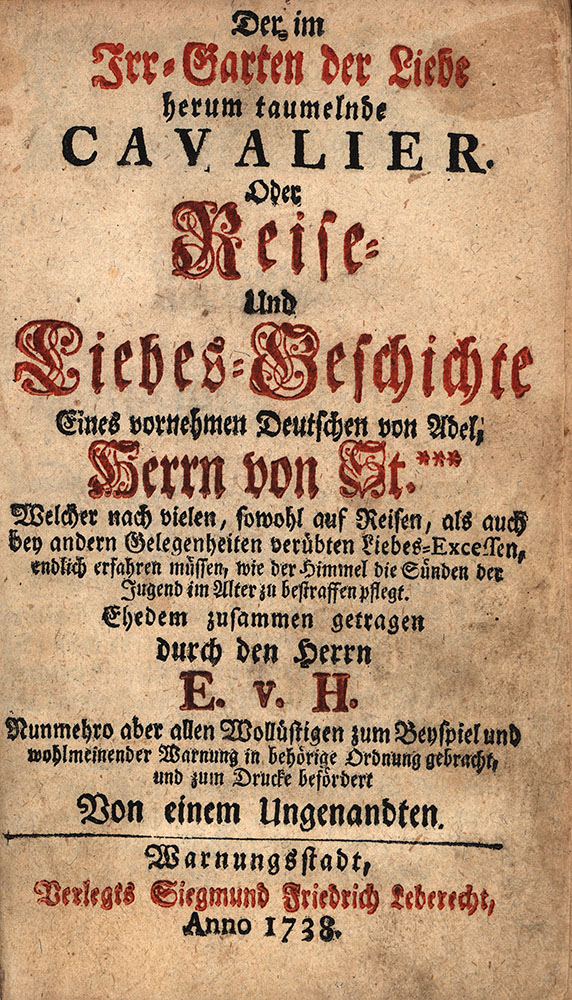 Der im
Irr-Garten der Liebe
herum taumelnde
CAVALIER.
Oder
Reise-
Und
Liebes-Geschichte
Eines vornehmen Deutschen von Adel,
Herrn von St.***
Welcher nach vielen, sowohl auf Reisen, als auch
bey andern Gelegenheiten verübten Liebes-Excessen,
endlich erfahren müssen, wie der Himmel die Sünden der
Jugend im Alter zu bestraffen pflegt.
Ehedem zusammen getragen
durch den Herrn
E. v. H.
Nunmehro aber allen Wollüstigen zum Beyspiel und
wohlmeinender Warnung in behörige Ordnung gebracht,
und zum Drucke befördert
Von einem Ungenandten.
Warnungsstadt,
Verlegts Siegmund Friedrich Leberecht,
Anno 1738.